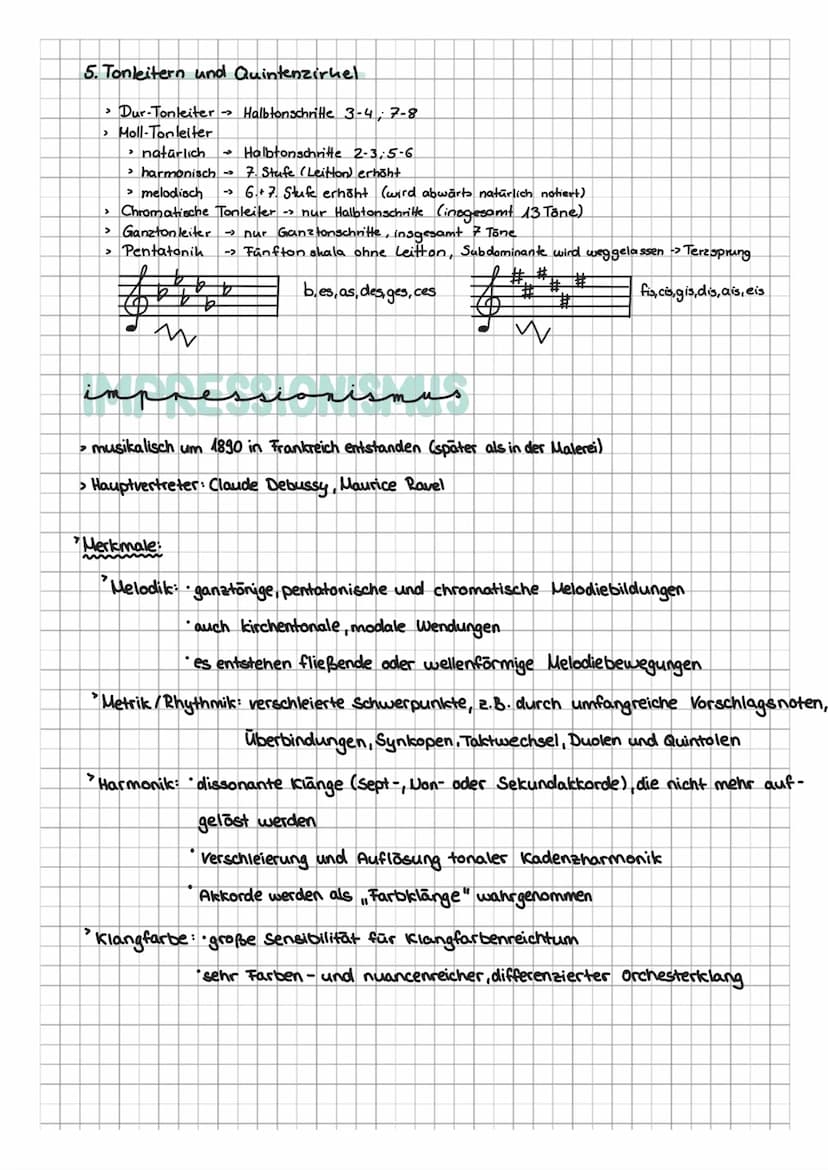 5. Tonleitern und Quintenzirkel
> Dur-Tonleiter -> Halbtonschritte 3-4; 7-8
> Moll-Tonleiter
> natürlich -> Halbtonschritte 2-3; 5-6
> harmonisch -> 7. Stufe (Leitton) erhöht
> melodisch -> 6.+7. Stufe erhöht (wird abwärts natürlich notiert)
> Chromatische Tonleiter -> nur Halbtonschritte (insgesamt 13 Töne)
> Ganztonleiter -> nur Ganztonschritte, insgesamt 7 Töne
> Pentatonik -> Fünftonskala ohne Leitton, Subdominante wird weggelassen -> Terzsprung
b, es, as, des, ges, ces
fis, cis, gis, dis, ais, eis
IMPRESSIONISMUS
impressionismus
> musikalisch um 1890 in Frankreich entstanden (später als in der Malerei)
> Hauptvertreter: Claude Debussy, Maurice Ravel
> Merkmale:
> Melodik: · ganztönige, pentatonische und chromatische Melodiebildungen
· auch kirchentonale, modale Wendungen
· es entstehen fließende oder wellenförmige Melodiebewegungen
> Metrik/Rhythmik: verschleierte Schwerpunkte, z.B. durch umfangreiche Vorschlagsnoten,
Überbindungen, Synkopen, Taktwechsel, Duolen und Quintolen
> Harmonik: · dissonante Klänge (Sept-, Non- oder Sekundakkorde), die nicht mehr auf-
gelöst werden
· Verschleierung und Auflösung tonaler Kadenzharmonik
· Akkorde werden als „Farbklänge" wahrgenommen
> Klangfarbe: · große Sensibilität für Klangfarbenreichtum
· sehr Farben- und nuancenreicher, differenzierter Orchesterklang